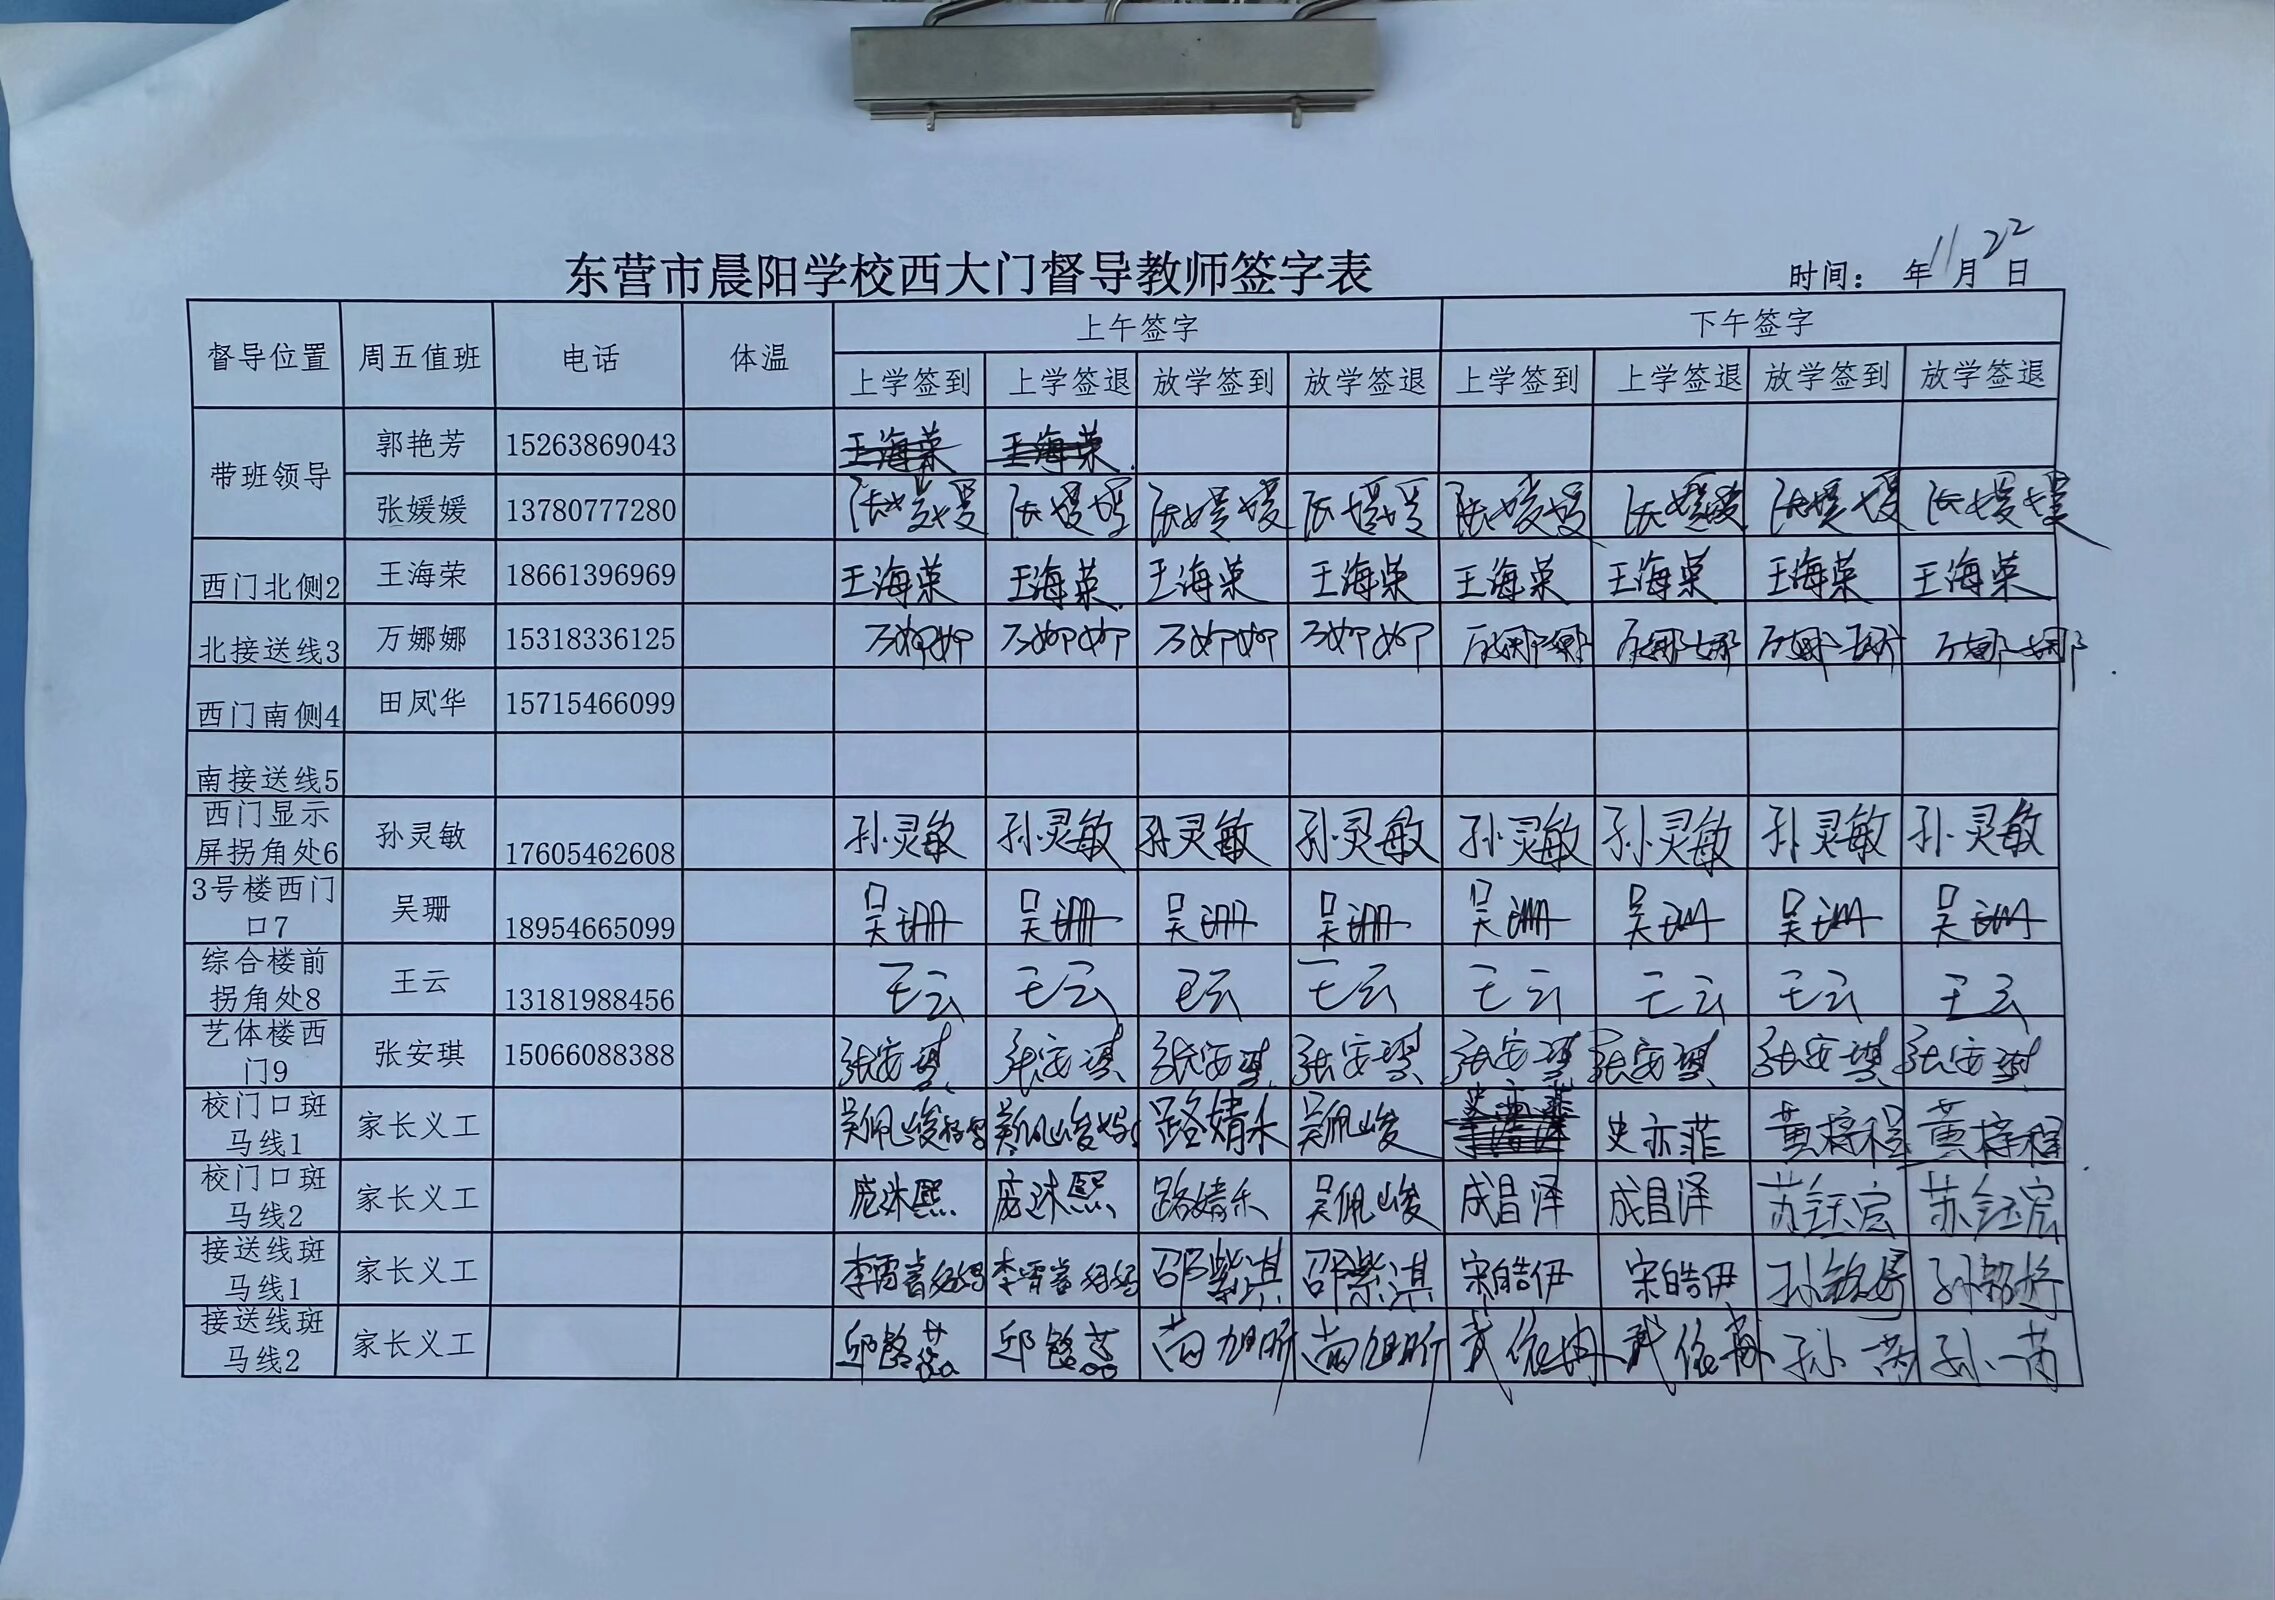 东营市晨阳学校西大门督导教师签字表
时间： 年11月22日
督导位置 周五值班 电话 体温 上午签字 下午签字
上学签到 上学签退 放学签到 放学签退 上学签到 上学签退 放学签到 放学签退
带班领导 郭艳芳 15263869043 王海荣 王海荣
张媛媛 13780777280 张媛媛 张媛媛 张媛媛 张媛媛 张媛媛 张媛媛 张媛媛 张媛媛
西门北侧2 王海荣 18661396969 王海荣 王海荣 王海荣 王海荣 王海荣 王海荣 王海荣 王海荣
北接送线3 万娜娜 15318336125 万娜娜 万娜娜 万娜娜 万娜娜 万娜娜 万娜娜 万娜娜 万娜娜
西门南侧4 田凤华 15715466099
南接送线5
西门显示
屏拐角处6 孙灵敏 17605462608 孙灵敏 孙灵敏 孙灵敏 孙灵敏 孙灵敏 孙灵敏 孙灵敏 孙灵敏
3号楼西门
口7 吴珊 18954665099 吴珊 吴珊 吴珊 吴珊 吴珊 吴珊 吴珊 吴珊
综合楼前
拐角处8 王云 13181988456 王云 王云 王云 王云 王云 王云 王云 王云
艺体楼西
门9 张安琪 15066088388 张安琪 张安琪 张安琪 张安琪 张安琪 张安琪 张安琪 张安琪
校门口斑
马线1 家长义工 吴佩峻妈妈 吴佩峻妈妈 路婧禾 吴佩峻 史亦菲 黄梓程 黄梓程
校门口斑
马线2 家长义工 庞沐熙 庞沐熙 路婧禾 吴佩峻 成昌泽 成昌泽 苏钰宸 苏钰宸
接送线斑
马线1 家长义工 李霄睿妈妈 李霄睿妈妈 邵紫淇 邵紫淇 宋皓伊 宋皓伊
接送线斑
马线2 家长义工 尚旭昕 尚旭昕